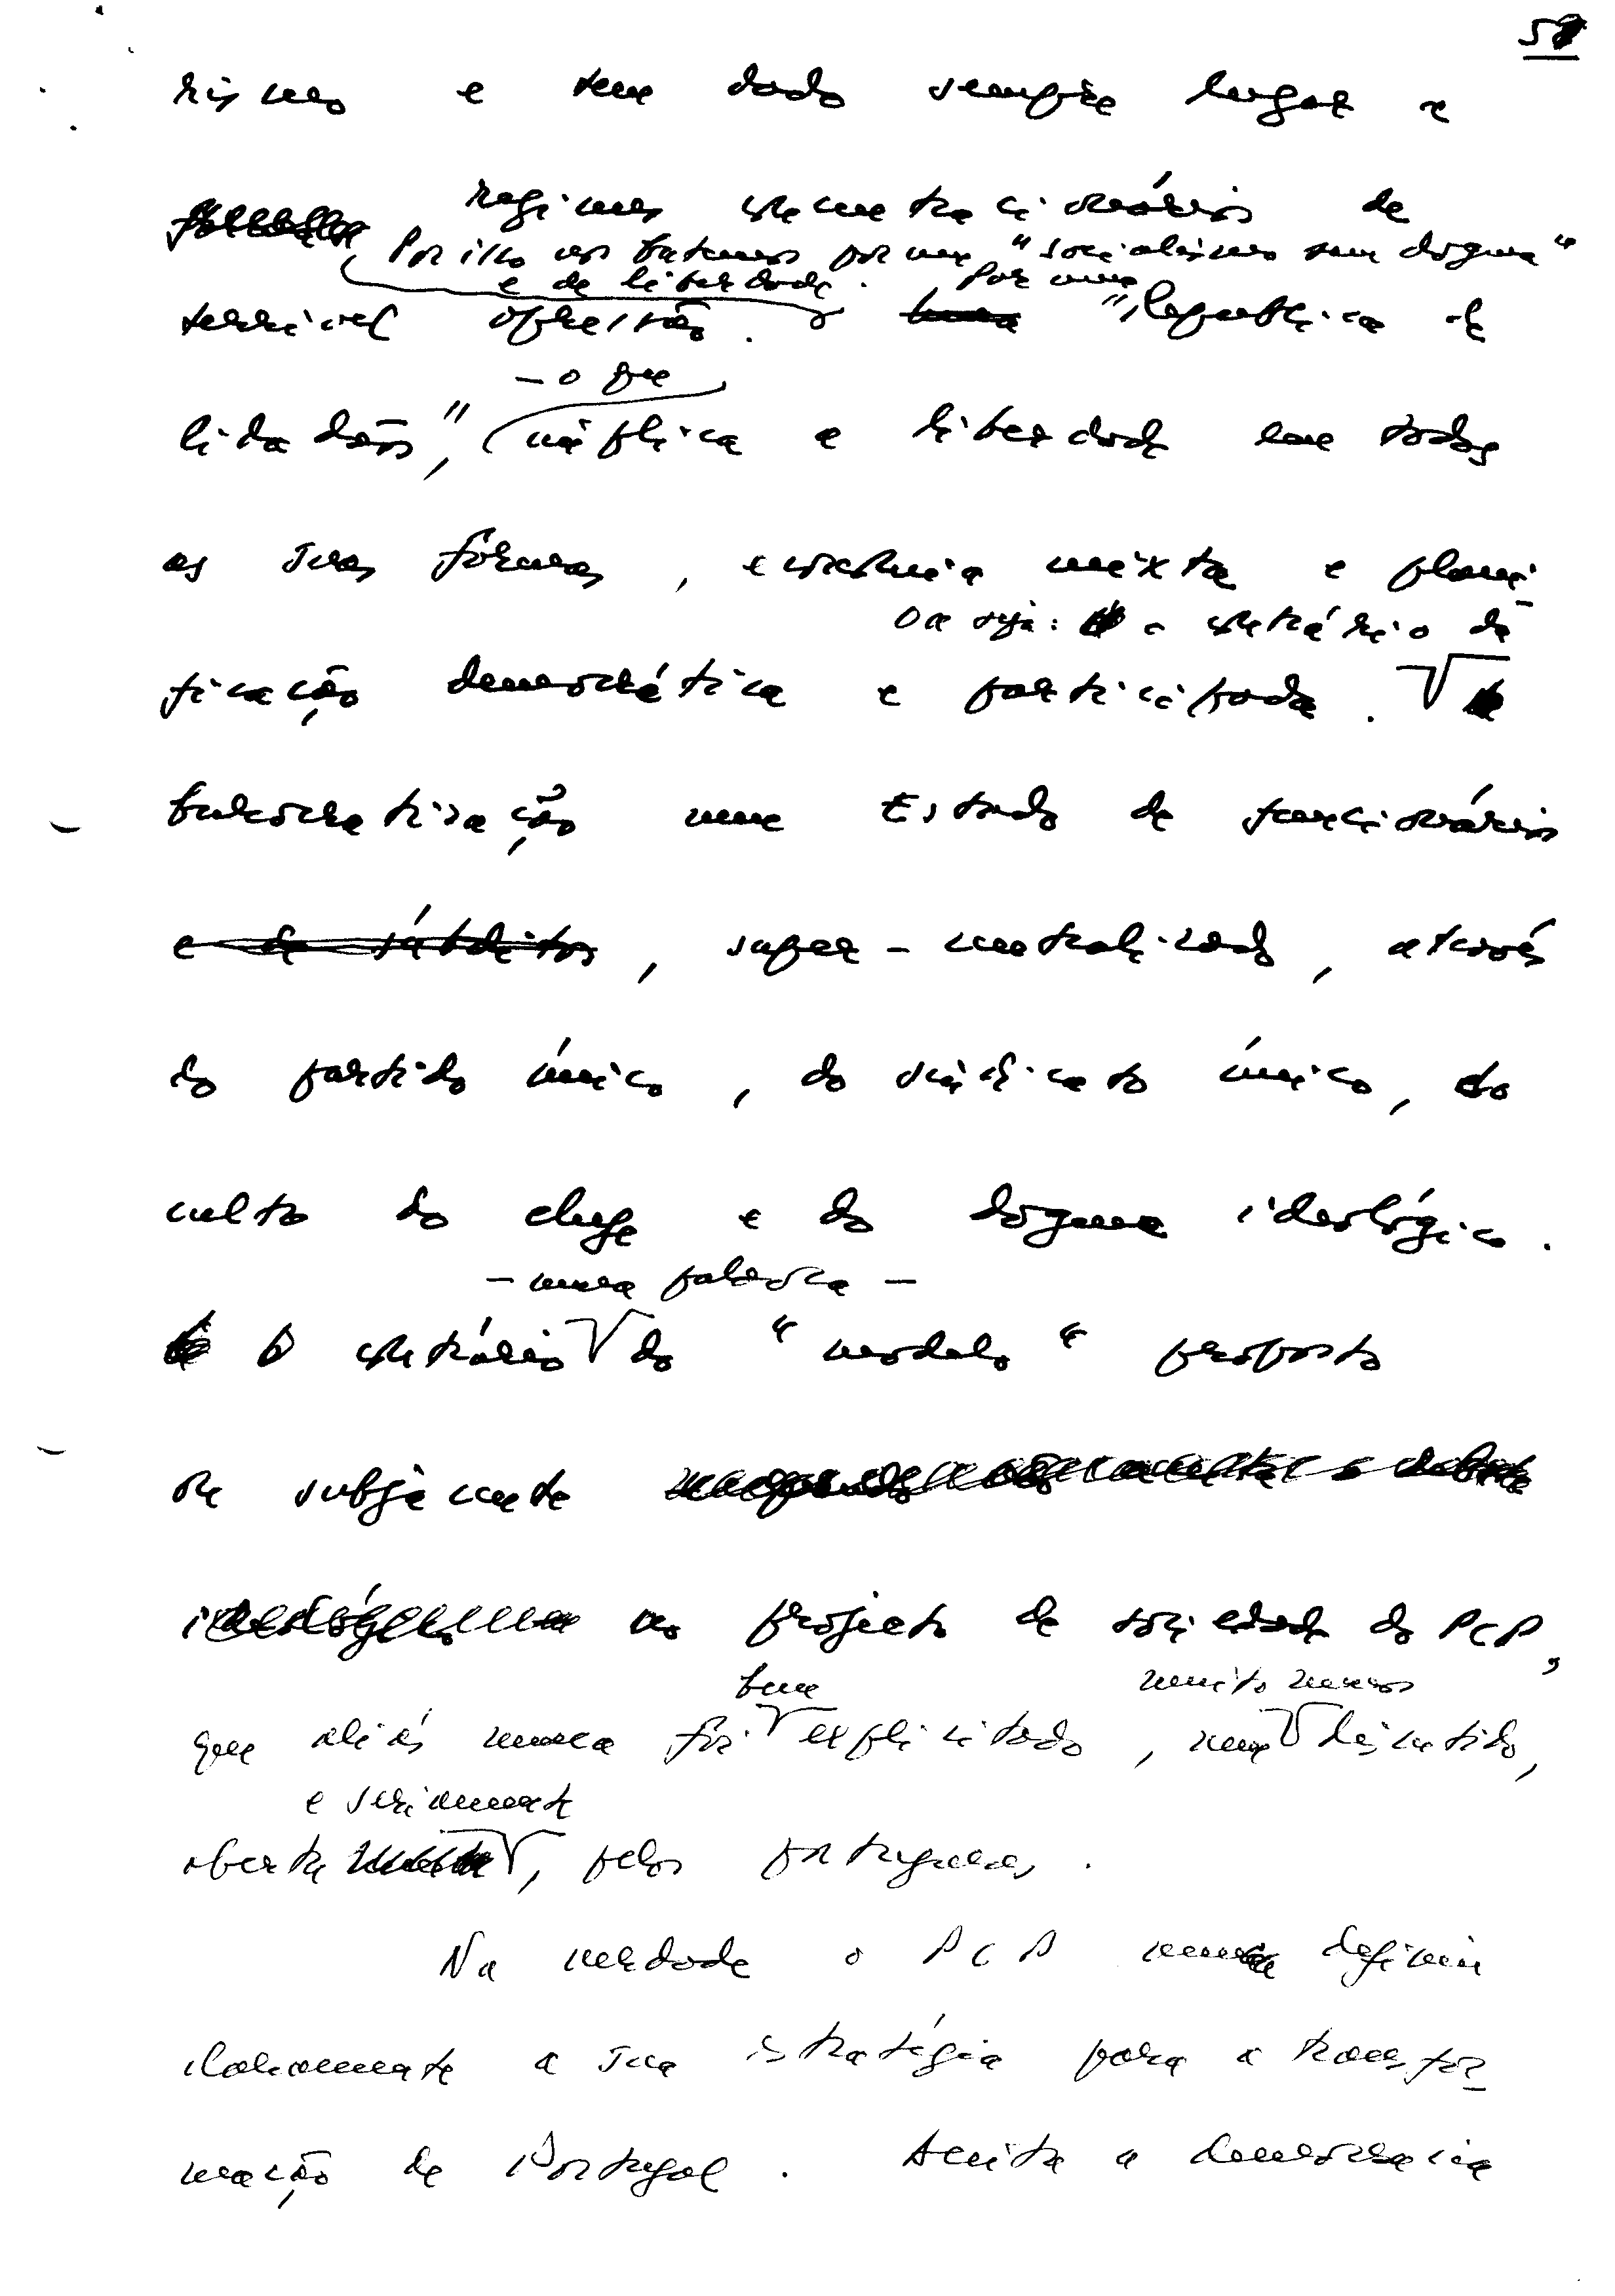 rismo e tem dado sempre lugar a
regimes concentracionários de
Por isso nos batemos por um "socialismo sem dogma"
e de liberdade. Por uma
terrível opressão. "República de
— o que
cidadãos", implica a liberdade em todas
as suas formas, economia mixta e plani-
Ou seja: o contrário da
ficação democrática e participada.
burocratização num Estado de funcionários
e de súbditos, super-centralizado, através
do partido único, do sindicato único, do
culto do chefe e do dogma ideológico.
— numa palavra —
O contrário do "modelo" proposto
ou subjacente
ideológico no projecto de sociedade do PCP,
bem muito menos
que aliás nunca foi explicitado, nem discutido,
e seriamente
aberta, pelos portugueses.
Na verdade o PCP nunca definiu
claramente a sua estratégia para a transfor-
mação de Portugal. Aceita a democracia